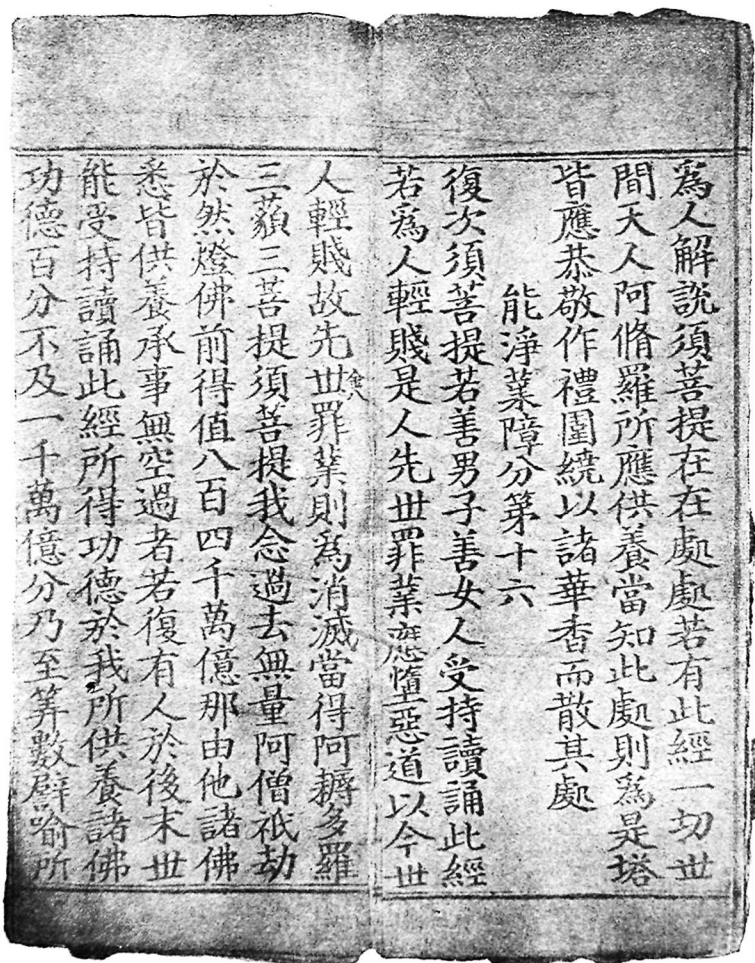 爲人解說須菩提在在處處若有此經一切世
間天人阿脩羅所應供養當知此處則爲是塔
皆應恭敬作禮圍繞以諸華香而散其處
能淨業障分第十六
復次須菩提若善男子善女人受持讀誦此經
若爲人輕賤是人先世罪業應墮惡道以今世
人輕賤故先世罪業則爲消滅當得阿耨多羅
金八
三藐三菩提須菩提我念過去無量阿僧祇劫
於然燈佛前得值八百四千萬億那由他諸佛
悉皆供養承事無空過者若復有人於後末世
能受持讀誦此經所得功德於我所供養諸佛
功德百分不及一千萬億分乃至筭數譬喻所